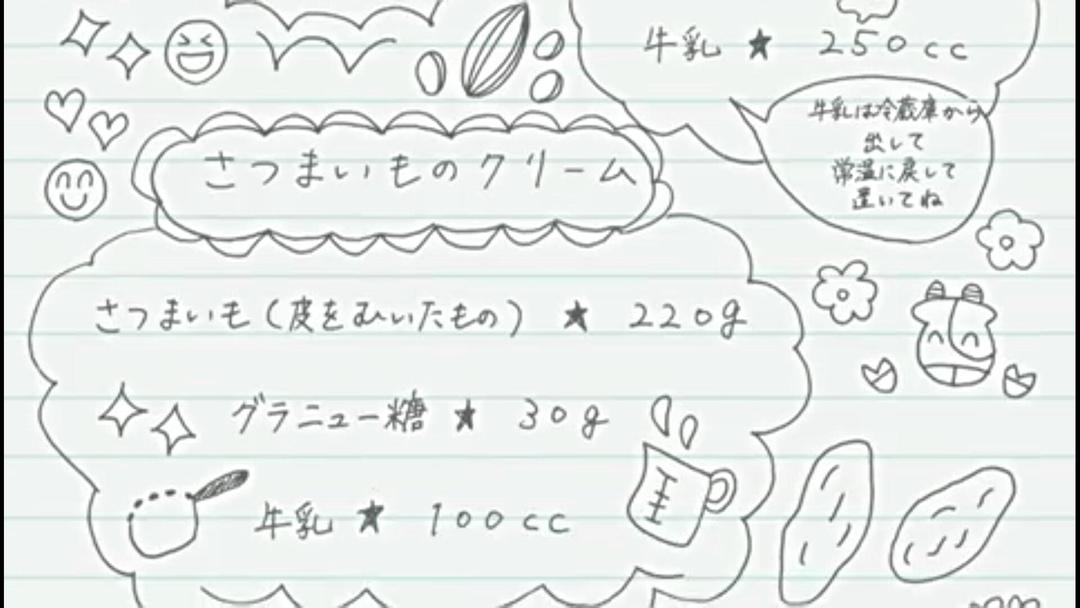 牛乳 ★ 250cc
牛乳は冷蔵庫から
出して
常温に戻して
置いてね
さつまいものクリーム
さつまいも(皮をむいたもの) ★ 220g
グラニュー糖 ★ 30g
牛乳 ★ 100cc